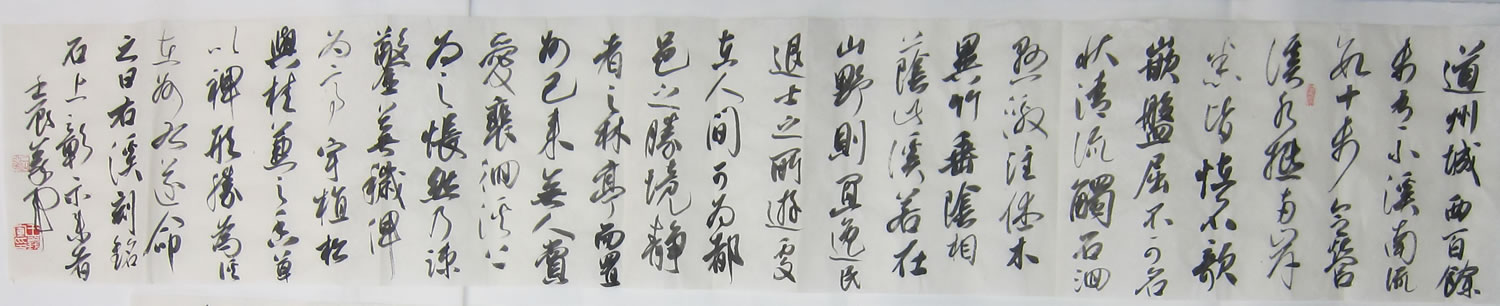 道州城西百餘
步有小溪南流
數十步合營
溪水抵兩岸
悉皆怪石欹
嵌盤屈不可名
狀清流觸石洄
懸激注佳木
異竹垂陰相
蔭此溪若在
山野則宜逸民
退士之所遊處
在人間可為都
邑之勝境靜
者之林亭而置
州已來無人賞
愛裴徊溪上
為之悵然乃疎
鑿蕪穢俾
為亭宇植松
與桂兼之香草
以裨形勝為溪
在州右遂命
之曰右溪刻銘
石上彰示來者
壬辰